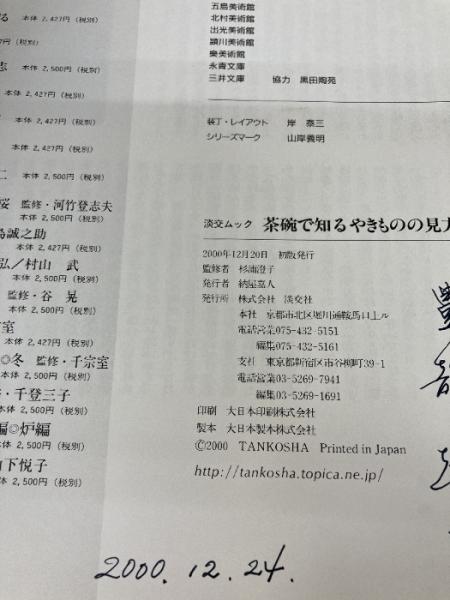 る 本体 2,427円（税別）
7円（税別）
志 本体 2,500円（税別）
本体 2,427円（税別）
本体 2,427円（税別）
本体 2,500円（税別）
二 本体 2,500円（税別）
桜 監修・河竹登志夫
本体 2,500円（税別）
島誠之助
本体 2,427円（税別）
弘／村山 武
本体 2,500円（税別）
監修・谷 晃
本体 2,500円（税別）
室
本体 2,427円（税別）
◎冬 監修・千宗室
本体 2,500円（税別）
・千登三子
本体 2,500円（税別）
編◎炉編
本体 2,500円（税別）
山下悦子
本体 2,500円（税別）
五島美術館
北村美術館
出光美術館
頴川美術館
樂美術館
永青文庫
三井文庫 協力 黒田陶苑
装丁・レイアウト 岸 泰三
シリーズマーク 山岸義明
淡交ムック 茶碗で知るやきものの見方
2000年12月20日 初版発行
監修者 杉浦澄子
発行者 納屋嘉人
発行所 株式会社 淡交社
本社 京都市北区堀川通鞍馬口上ル
電話営業075-432-5151
編集075-432-5161
支社 東京都新宿区市谷柳町39-1
電話営業03-5269-7941
編集03-5269-1691
印刷 大日本印刷株式会社
製本 大日本製本株式会社
©2000 TANKOSHA Printed in Japan
http://tankosha.topica.ne.jp/
2000. 12. 24.